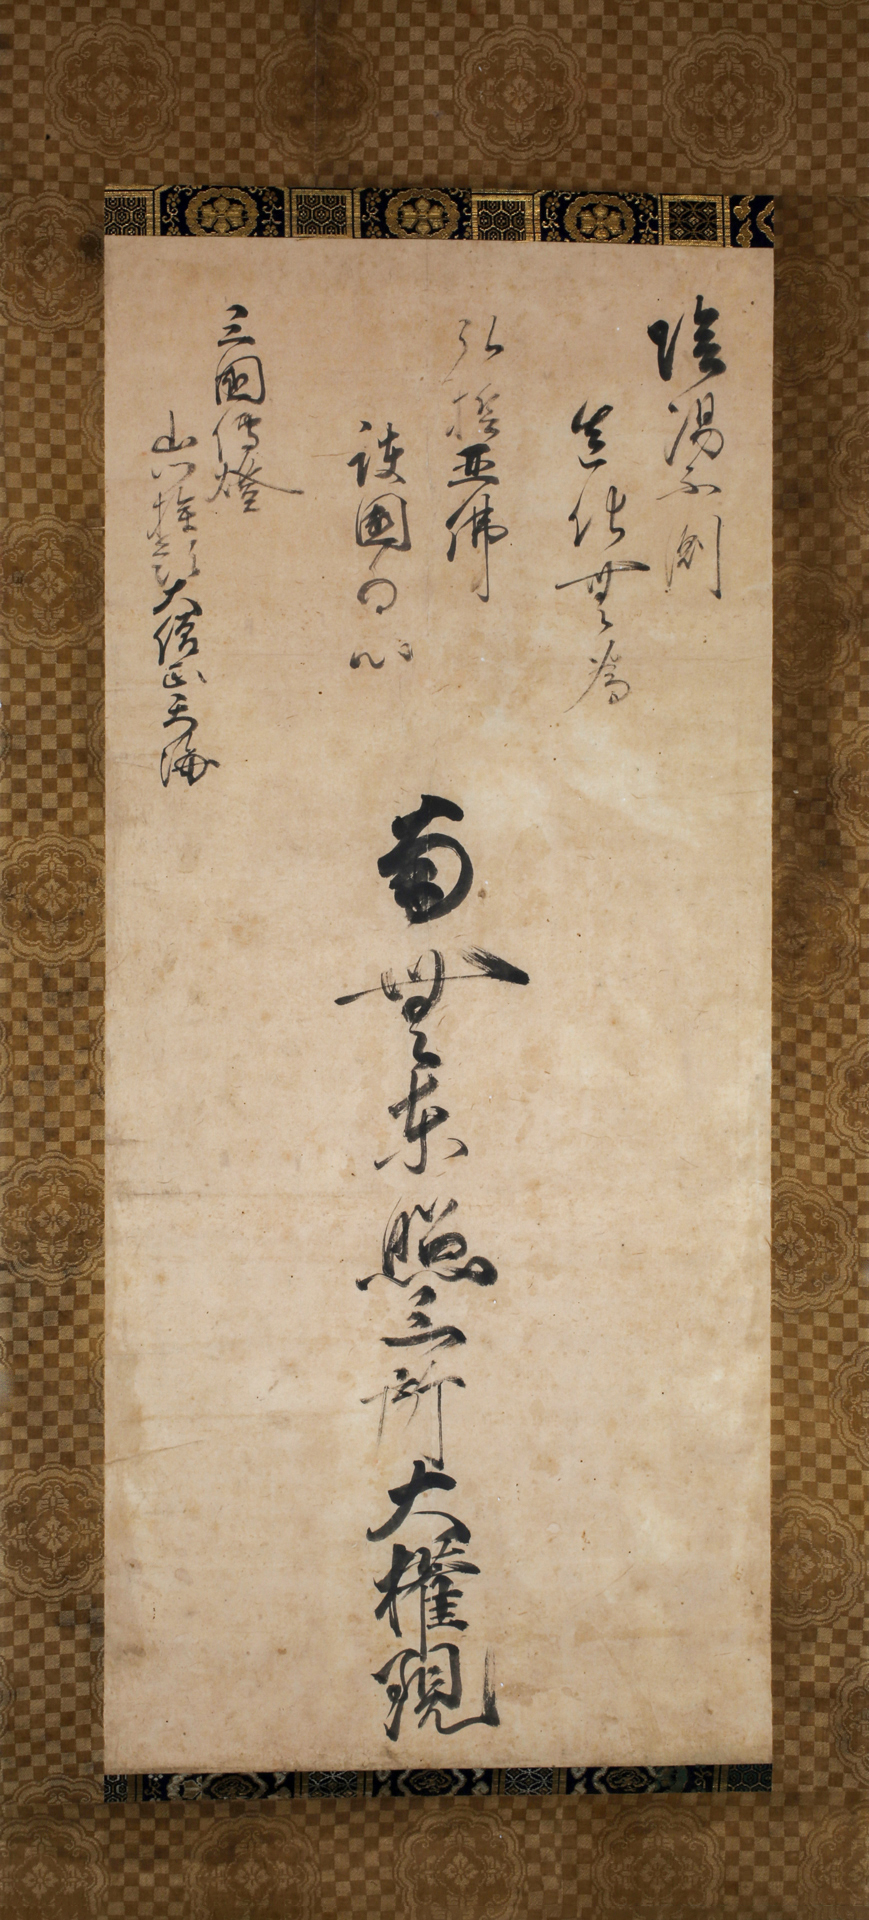 陰陽不測
造化無為
弘誓亜佛
護國為心
三國傳燈
山門探題大僧正天海
南無東照三所大權現